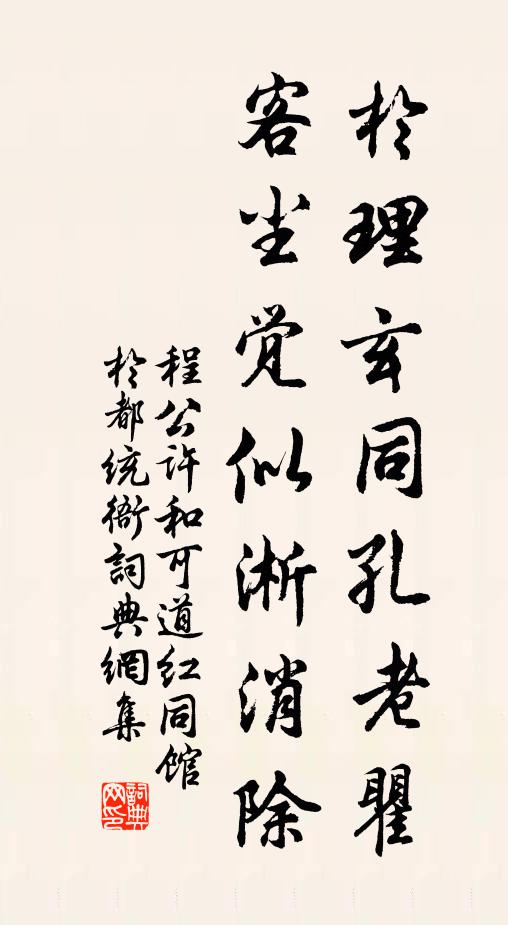 於理玄同孔老瞿
客尘觉似淅消除
程公许和可道红同馆
於都统衙詞典網集
詞典网印